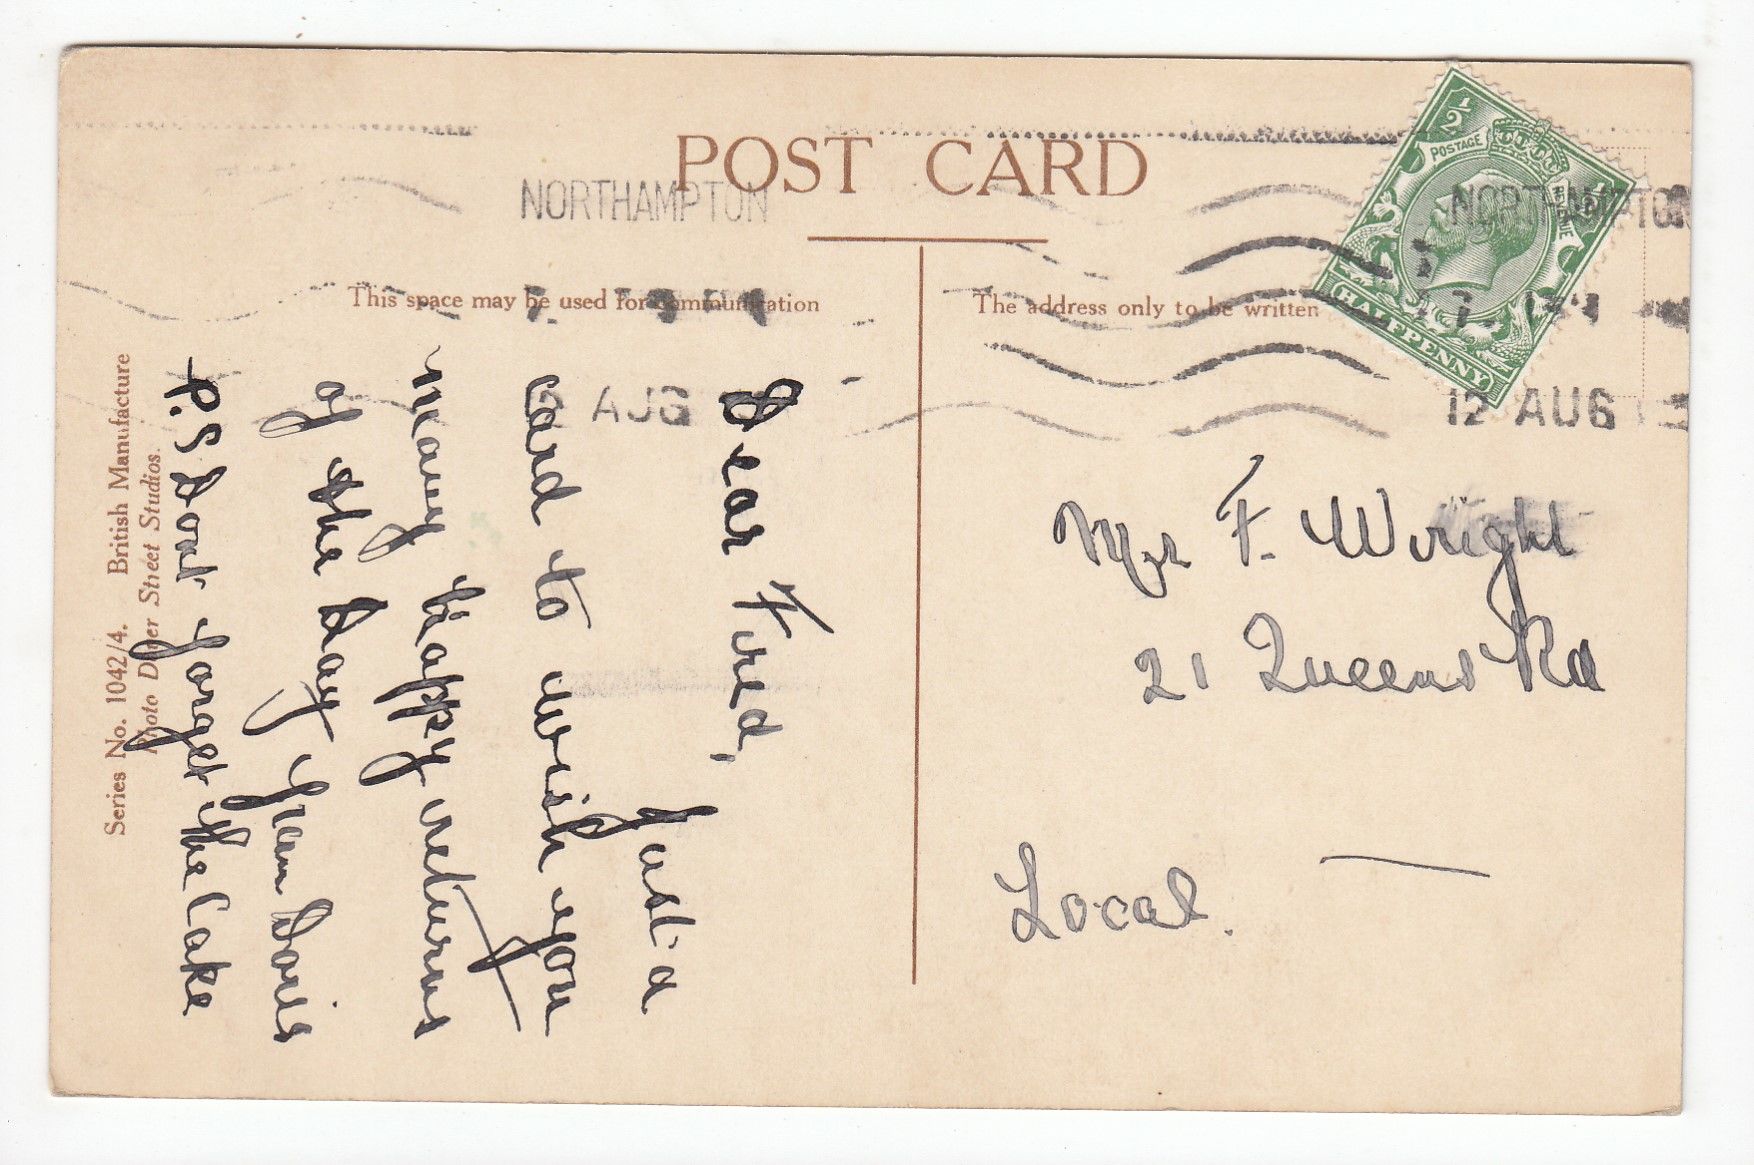 POST CARD
NORTHAMPTON
NORTHAMPTON
½ ½
POSTAGE
REVENUE
HALFPENNY
This space may be used for communication
The address only to be written
AUG
12 AUG
Dear Fred,
Just a
card to wish you
many happy returns
of the Day from Doris
P.S Dont forget the Cake
Mr F. Wright
21 Queens Rd
Local.
Series No. 1042/4. British Manufacture
Photo Dover Street Studios.